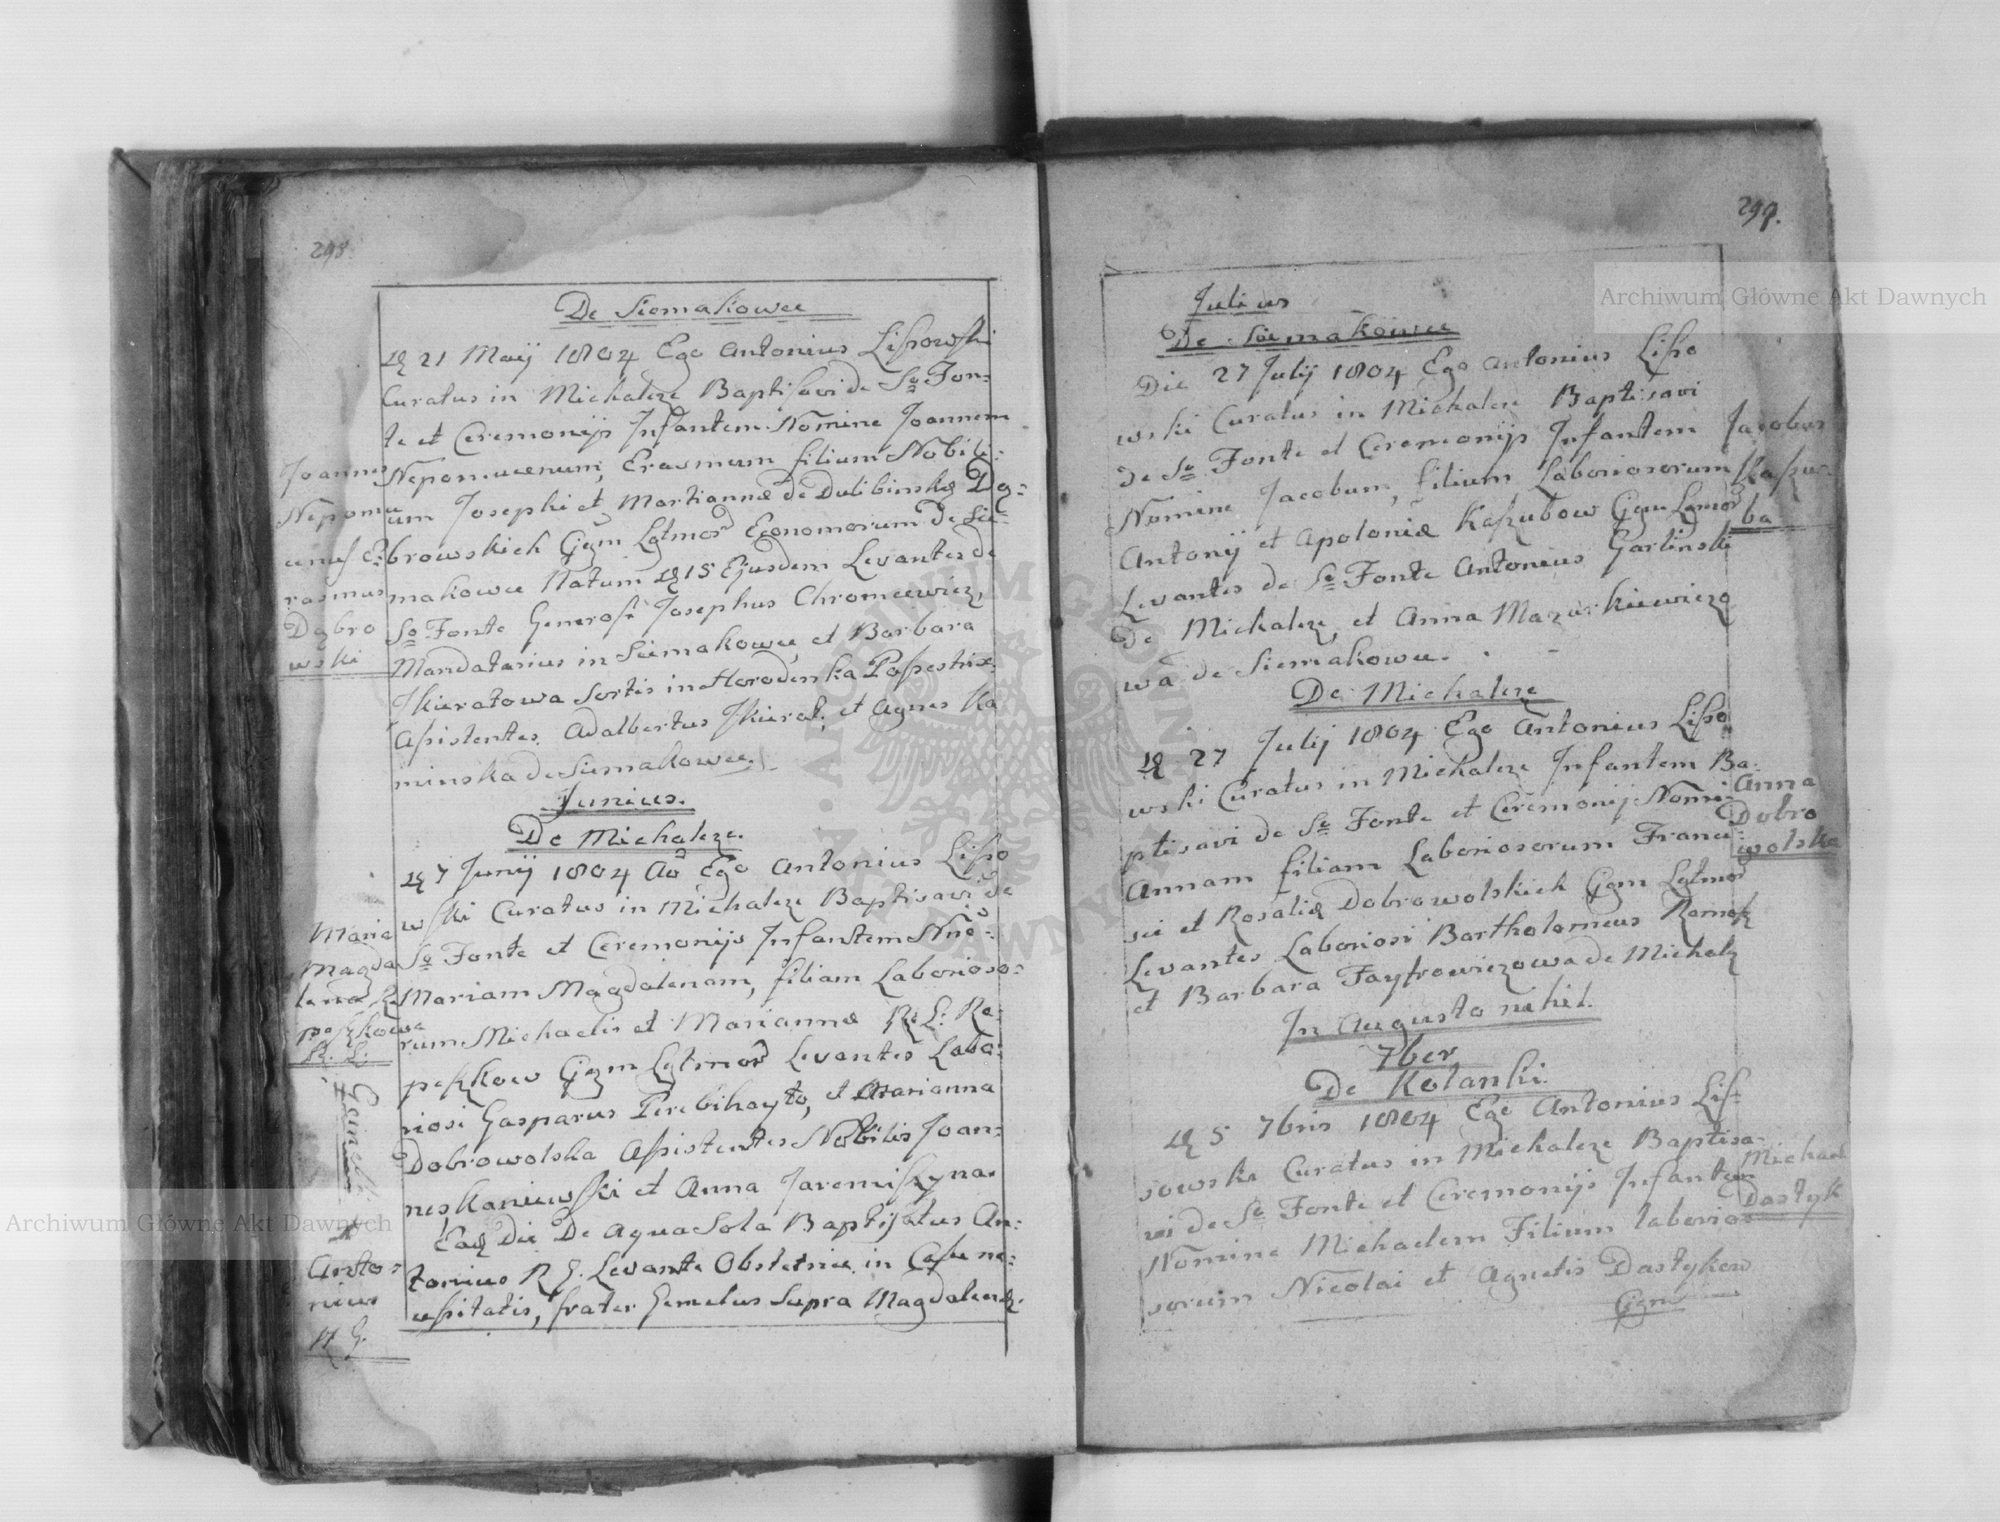 298.
De Siemakowce
21 Maij 1804 Ego Antonius Lissowski
Curatus in Michalcze Baptisavi de So Fon-
te et Ceremonijs Infantem Nomine Joannem
Nepomucenum, Erasmum filium Nobili-
um Josephi et Martiannæ de Dulibinskæ Dą-
browskich Cgym Lgtmor Economorum de Sie-
makowce Natum 15 Ejusdem Levantes de
So Fonte Generosi Josephus Chromcewicz,
Mandatarius in Siemakowce, et Barbara
Skieratowa Sortis in Horodenka Possestrix
Assistentes Adalbertus Skierat, et Agnes Ka
minska de Siemakowce.
Joannes
Nepomu
cenus E-
rasmus
Dąbro
wski
Junius.
De Michalcze.
7 Junij 1804 Ego Antonius Lisso
wski Curatus in Michalcze Baptisavi de
So Fonte et Ceremonijs Infantem Nne
Mariam Magdalenam, filiam Laborioso-
rum Michaelis et Mariannæ R: L: Re-
peszkow Cgym Lgtmor Levantes Labo-
riosi Gasparus Perebihayło, et Marianna
Dobrowolska Assistentes Nobilis Joan-
nes Kaniewski et Anna Jaremiszyna
Maria
Magda
lena Re
peszkowa
R. L.
Gemelli
Eadem Die De Aqua Sola Baptisatus An-
tonius R L. Levante Obstetrice in Casu ne-
cessitatis, frater Gemelus Supra Magdalenæ.
Anto-
nius
299.
Julius
De Siemakowce
Die 27 Julij 1804 Ego Antonius Lisso
wski Curatus in Michalcze Baptisavi
de So Fonte et Ceremonijs Infantem
Nomine Jacobum, filium Laboriosorum
Antonij et Apoloniæ Kaszubow Cgym Lgmor
Levantes de So Fonte Antonius Garlinski
de Michalcze, et Anna Mazurkiewiczo
wa de Siemakowce.
Jacobus
Kaszu-
ba
De Michalcze
27 Julij 1804 Ego Antonius Lisso
wski Curatus in Michalcze Infantem Ba-
ptisavi de So Fonte et Ceremonijs Nomi-
Annam filiam Laboriosorum Franci-
sci et Rosaliæ Dobrowolskich Cgym Lgtmor
Levantes Laboriosi Bartholomeus Romek
et Barbara Fayfrowiczowa de Michalcz
Anna
Dobro
wolska
In Augusto nihil.
7ber
De Kolanki.
5 7bris 1804 Ego Antonius Lis-
sowski Curatus in Michalcze Baptisa-
vi de So Fonte et Ceremonijs Infantem
Nomine Michaelem Filium laborio-
sorum Nicolai et Agnetis Dastykow
Cgym
Michael
Dastyk
Archiwum Główne Akt Dawnych
Archiwum Główne Akt Dawnych
ARCHIWUM GŁÓWNE AKT DAWNYCH